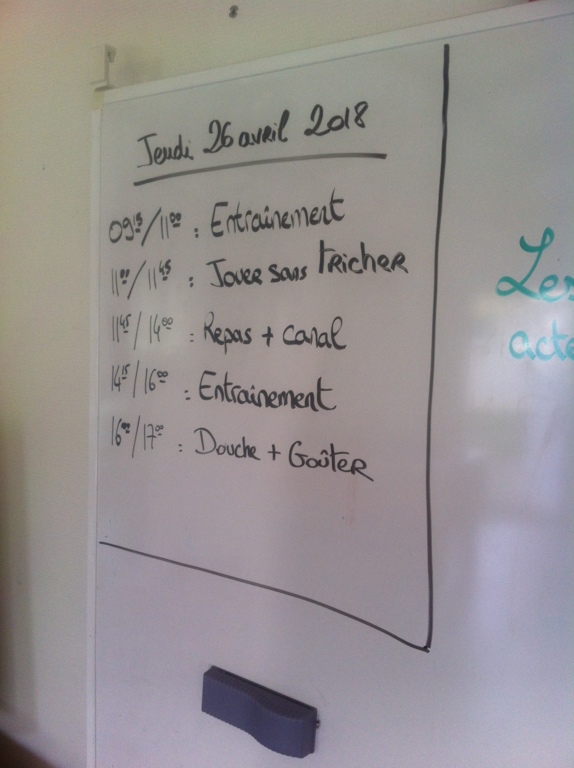 Jeudi 26 avril 2018
09 15 / 11 00 : Entraînement
11 00 / 11 45 : Jouer sans tricher
11 45 / 14 00 : Repas + canal
14 15 / 16 00 : Entraînement
16 00 / 17 00 : Douche + Goûter
Les
acte